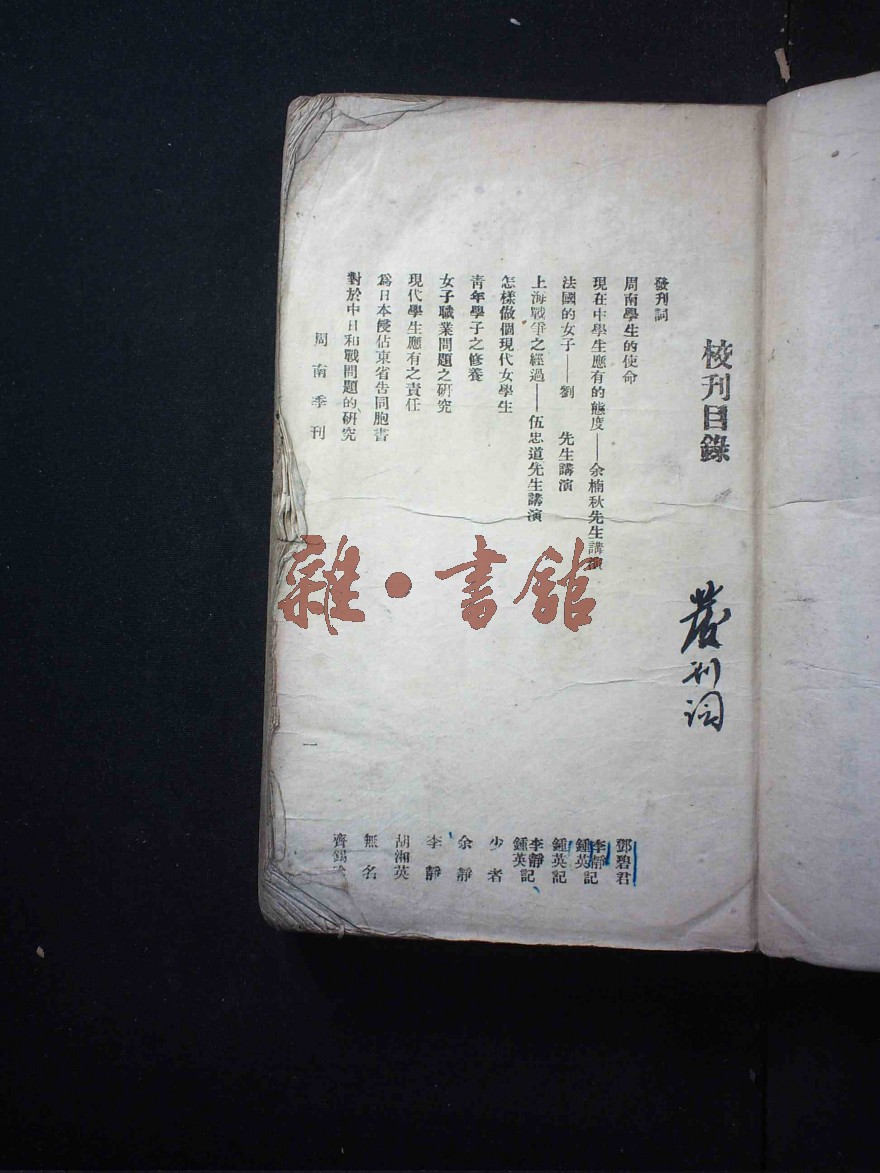 校刊目錄
發刊詞
發刊詞
周南學生的使命 鄧碧君
現在中學生應有的態度——余楠秋先生講演 李靜 鍾英記
法國的女子——劉 先生講演 鍾英記
上海戰爭之經過——伍忠道先生講演 李靜 鍾英記
怎樣做個現代女學生 少者
青年學子之修養 余靜
女子職業問題之研究 李靜
現代學生應有之責任 胡湘英
爲日本侵佔東省告同胞書 無名
對於中日和戰問題的研究 齊錫
周南季刊 一
雜·書館